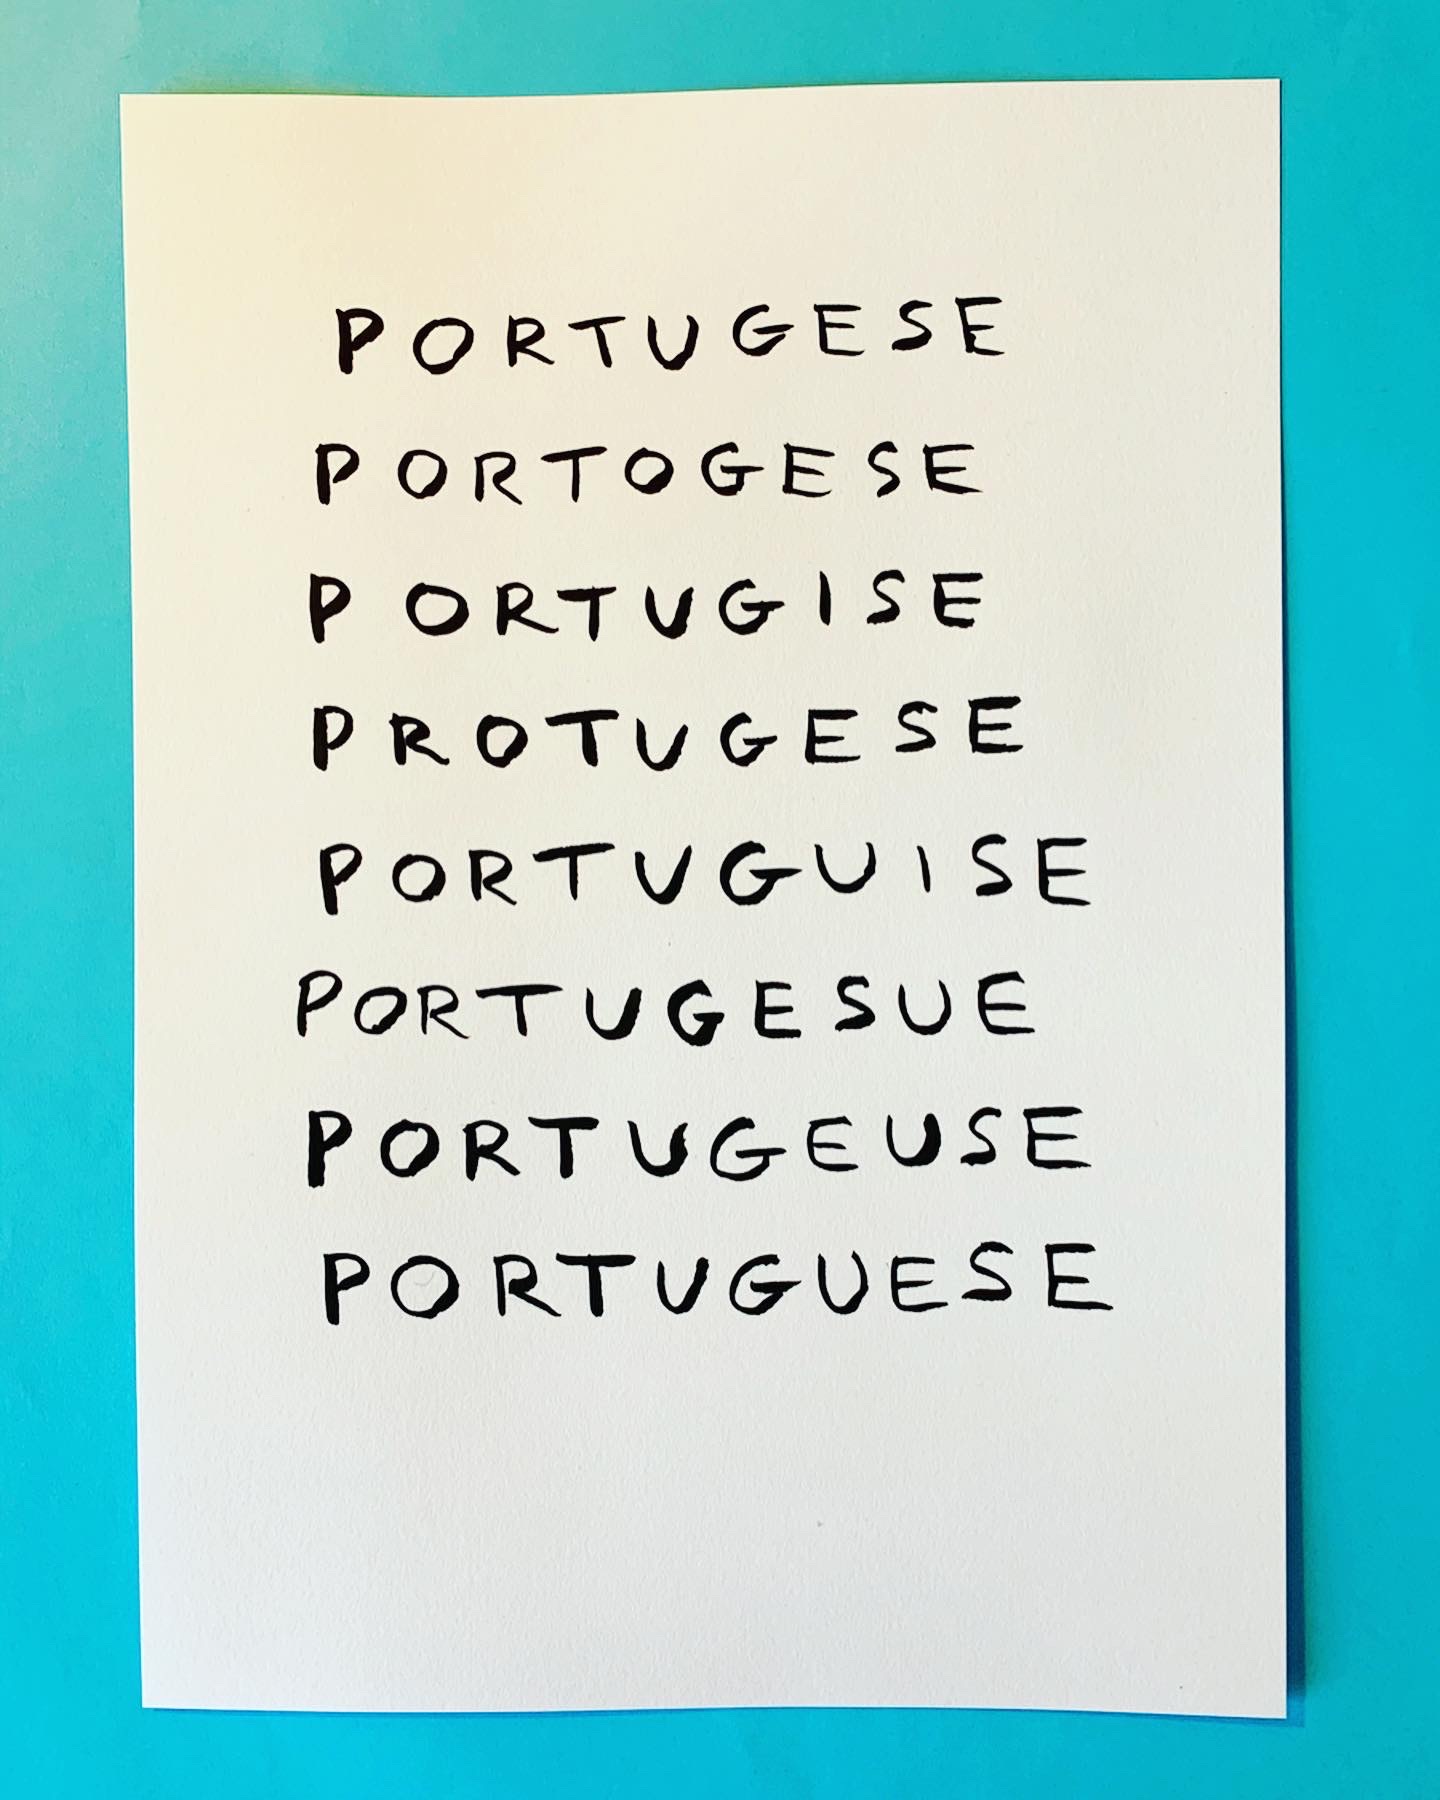 PORTUGESE
PORTOGESE
PORTUGISE
PROTUGESE
PORTUGUISE
PORTUGESUE
PORTUGEUSE
PORTUGUESE